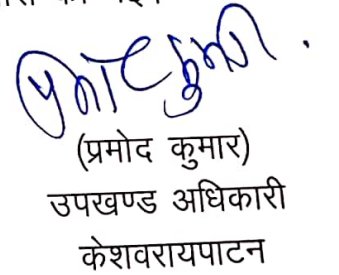 (प्रमोद कुमार)
उपखण्ड अधिकारी
केशवरायपाटन